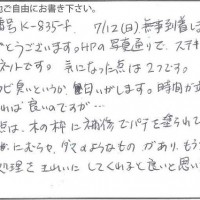 ご自由にお書き下さい。
番号 K-835-f. 7/12(日) 無事到着しま
とうございます。HPの写真通りで、ステキ
ネットです。気になった点は2つです。
カビ臭いというか、匂いがします。時間が
れば良いのですが…
点は、木の枠に補修でパテを塗られて
にむらや、ダマのようなものがあり、もう
処理をきれいにしてくれると良いと思い